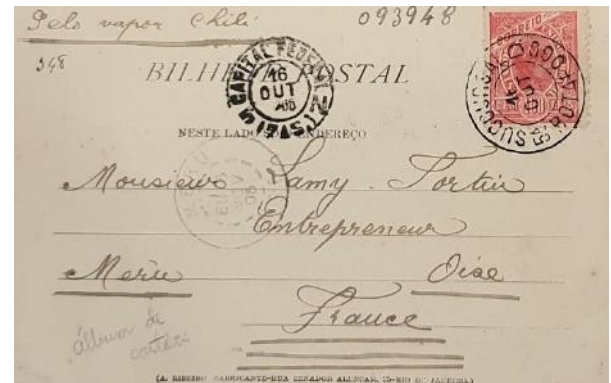 Pelo vapor Chili
093948
348
BILHETE POSTAL
CAPITAL FEDERAL
16
OUT
CORREIO
SUCCURSAL
OUT
NESTE LADO SÓ O ENDEREÇO
Monsieur Lamy-Portier
Entrepreneur
MERU
NOV
05
Meru Oise
France
álbum de
(A. RIBEIRO FABRICANTE-RUA SENADOR ALENCAR, RIO DE JANEIRO)